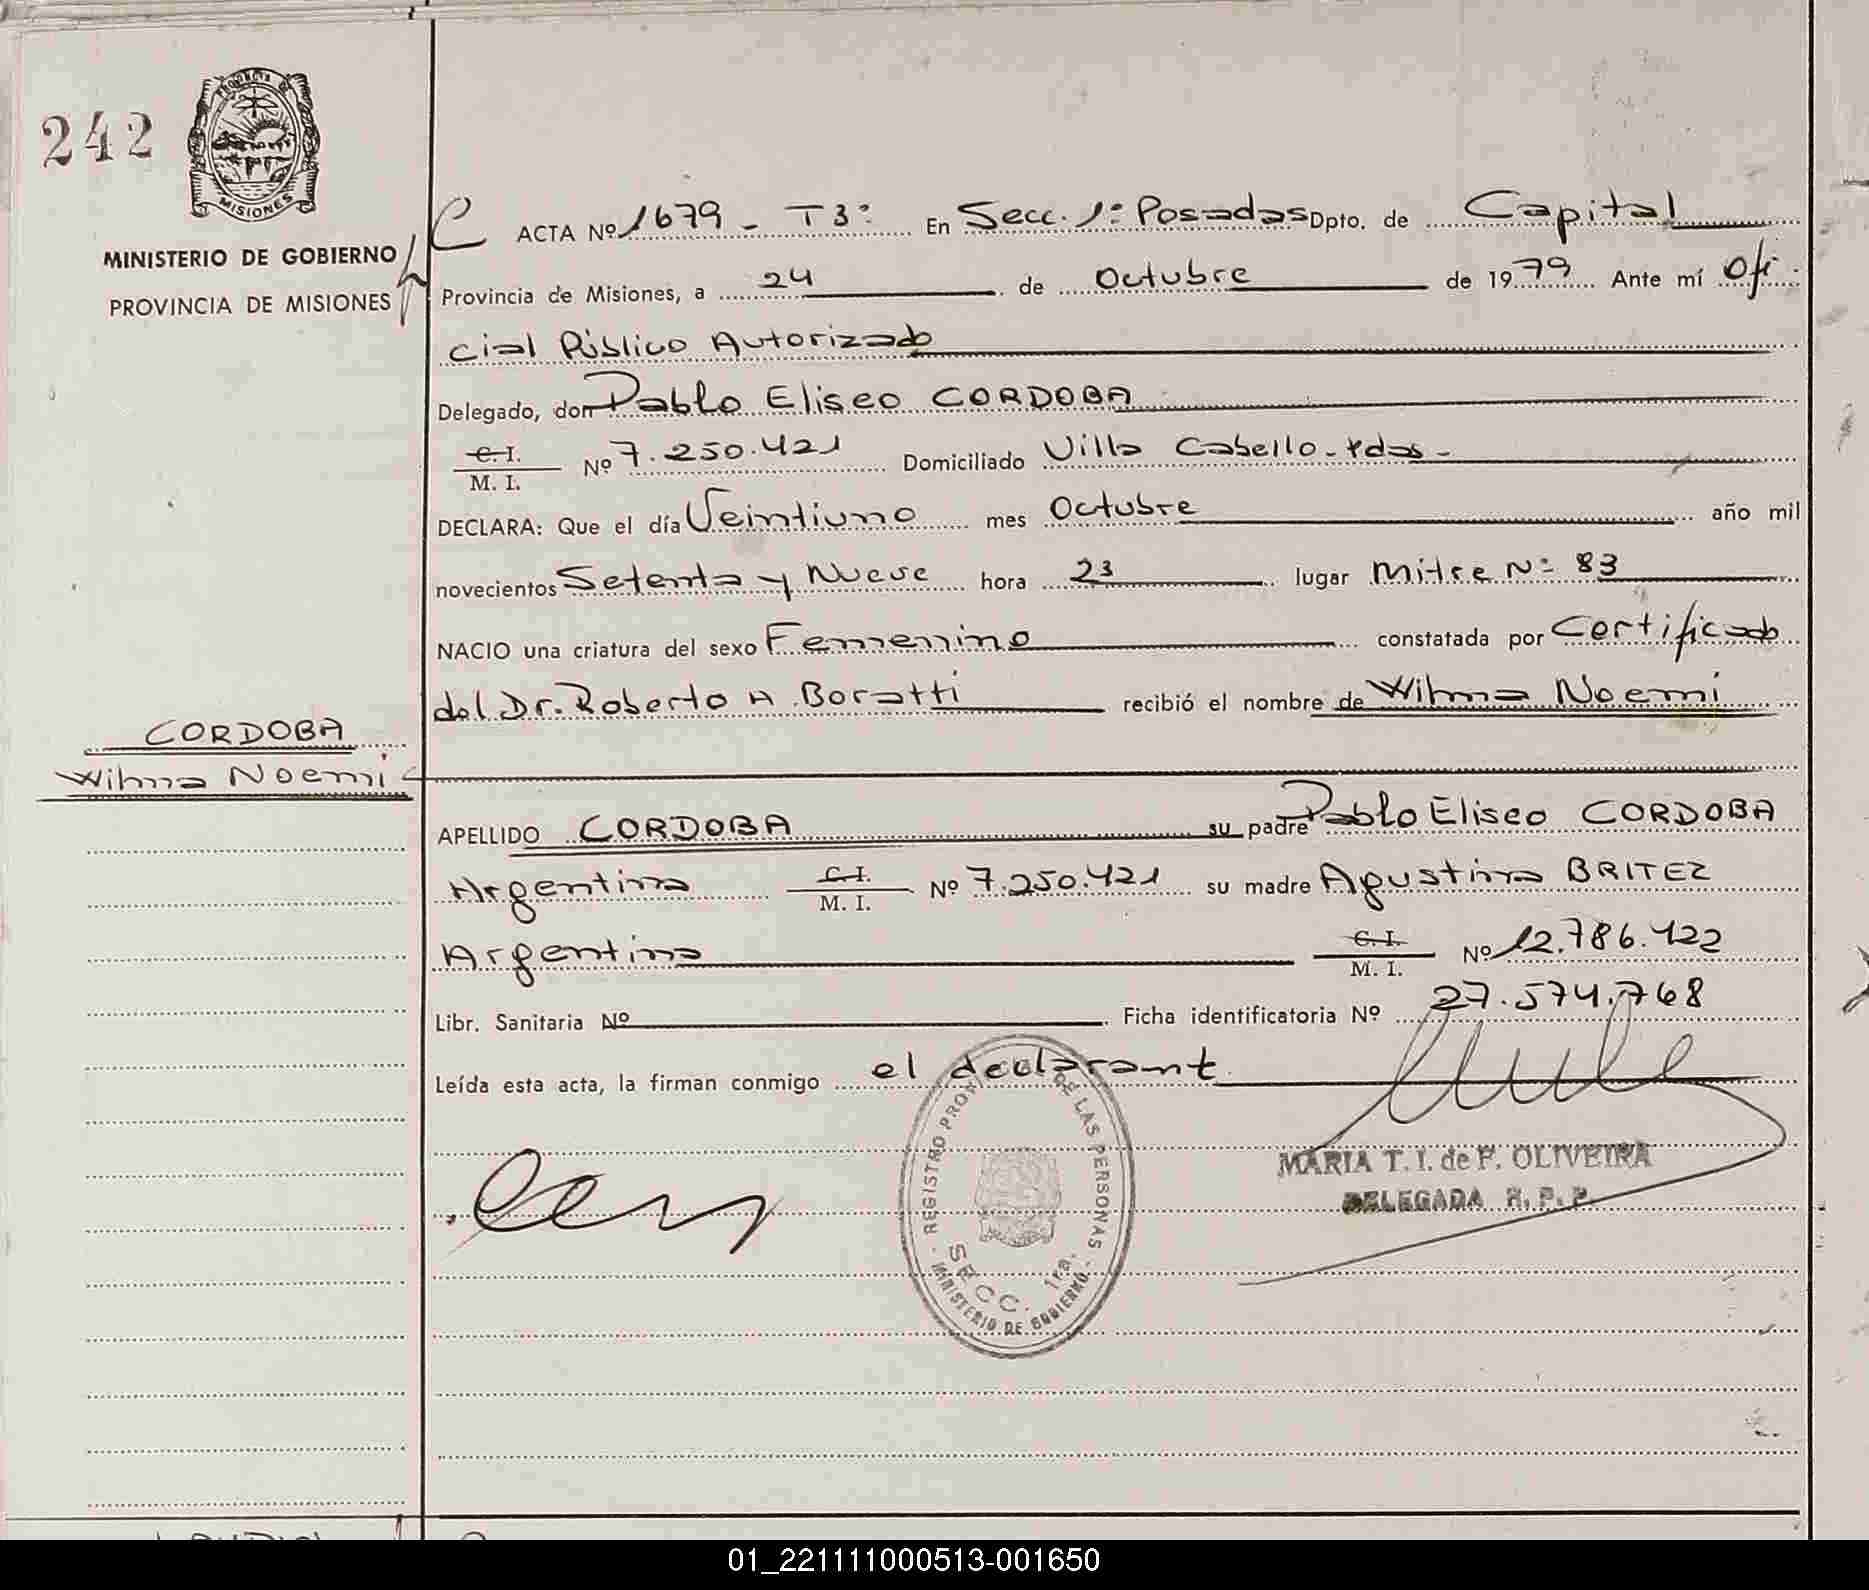 242
PROVINCIA DE
MISIONES
MINISTERIO DE GOBIERNO
PROVINCIA DE MISIONES
ACTA Nº 1679 - T3º En Secc. 1º Posadas Dpto. de Capital
Provincia de Misiones, a 24 de Octubre de 1979 Ante mí Ofi
cial Público Autorizado
Delegado, don Pablo Eliseo CORDOBA
C. I.
M. I. Nº 7.250.421 Domiciliado Villa Cabello - Pdas -
DECLARA: Que el día Veintiuno mes Octubre año mil
novecientos Setenta y Nueve hora 23 lugar Mitre Nº 83
NACIO una criatura del sexo Femenino constatada por Certificado
del Dr. Roberto A. Boratti recibió el nombre de Wilma Noemi
CORDOBA
Wilma Noemi
APELLIDO CORDOBA su padre Pablo Eliseo CORDOBA
Argentina C. I.
M. I. Nº 7.250.421 su madre Agustina BRITEZ
Argentina C. I.
M. I. Nº 12.786.422
Libr. Sanitaria Nº Ficha identificatoria Nº 27.574.768
Leída esta acta, la firman conmigo el declarant
REGISTRO PROV DE LAS PERSONAS
SECC. 1ra.
MINISTERIO DE GOBIERNO
MARIA T. I. de F. OLIVEIRA
DELEGADA R. P. P.
01_221111000513-001650